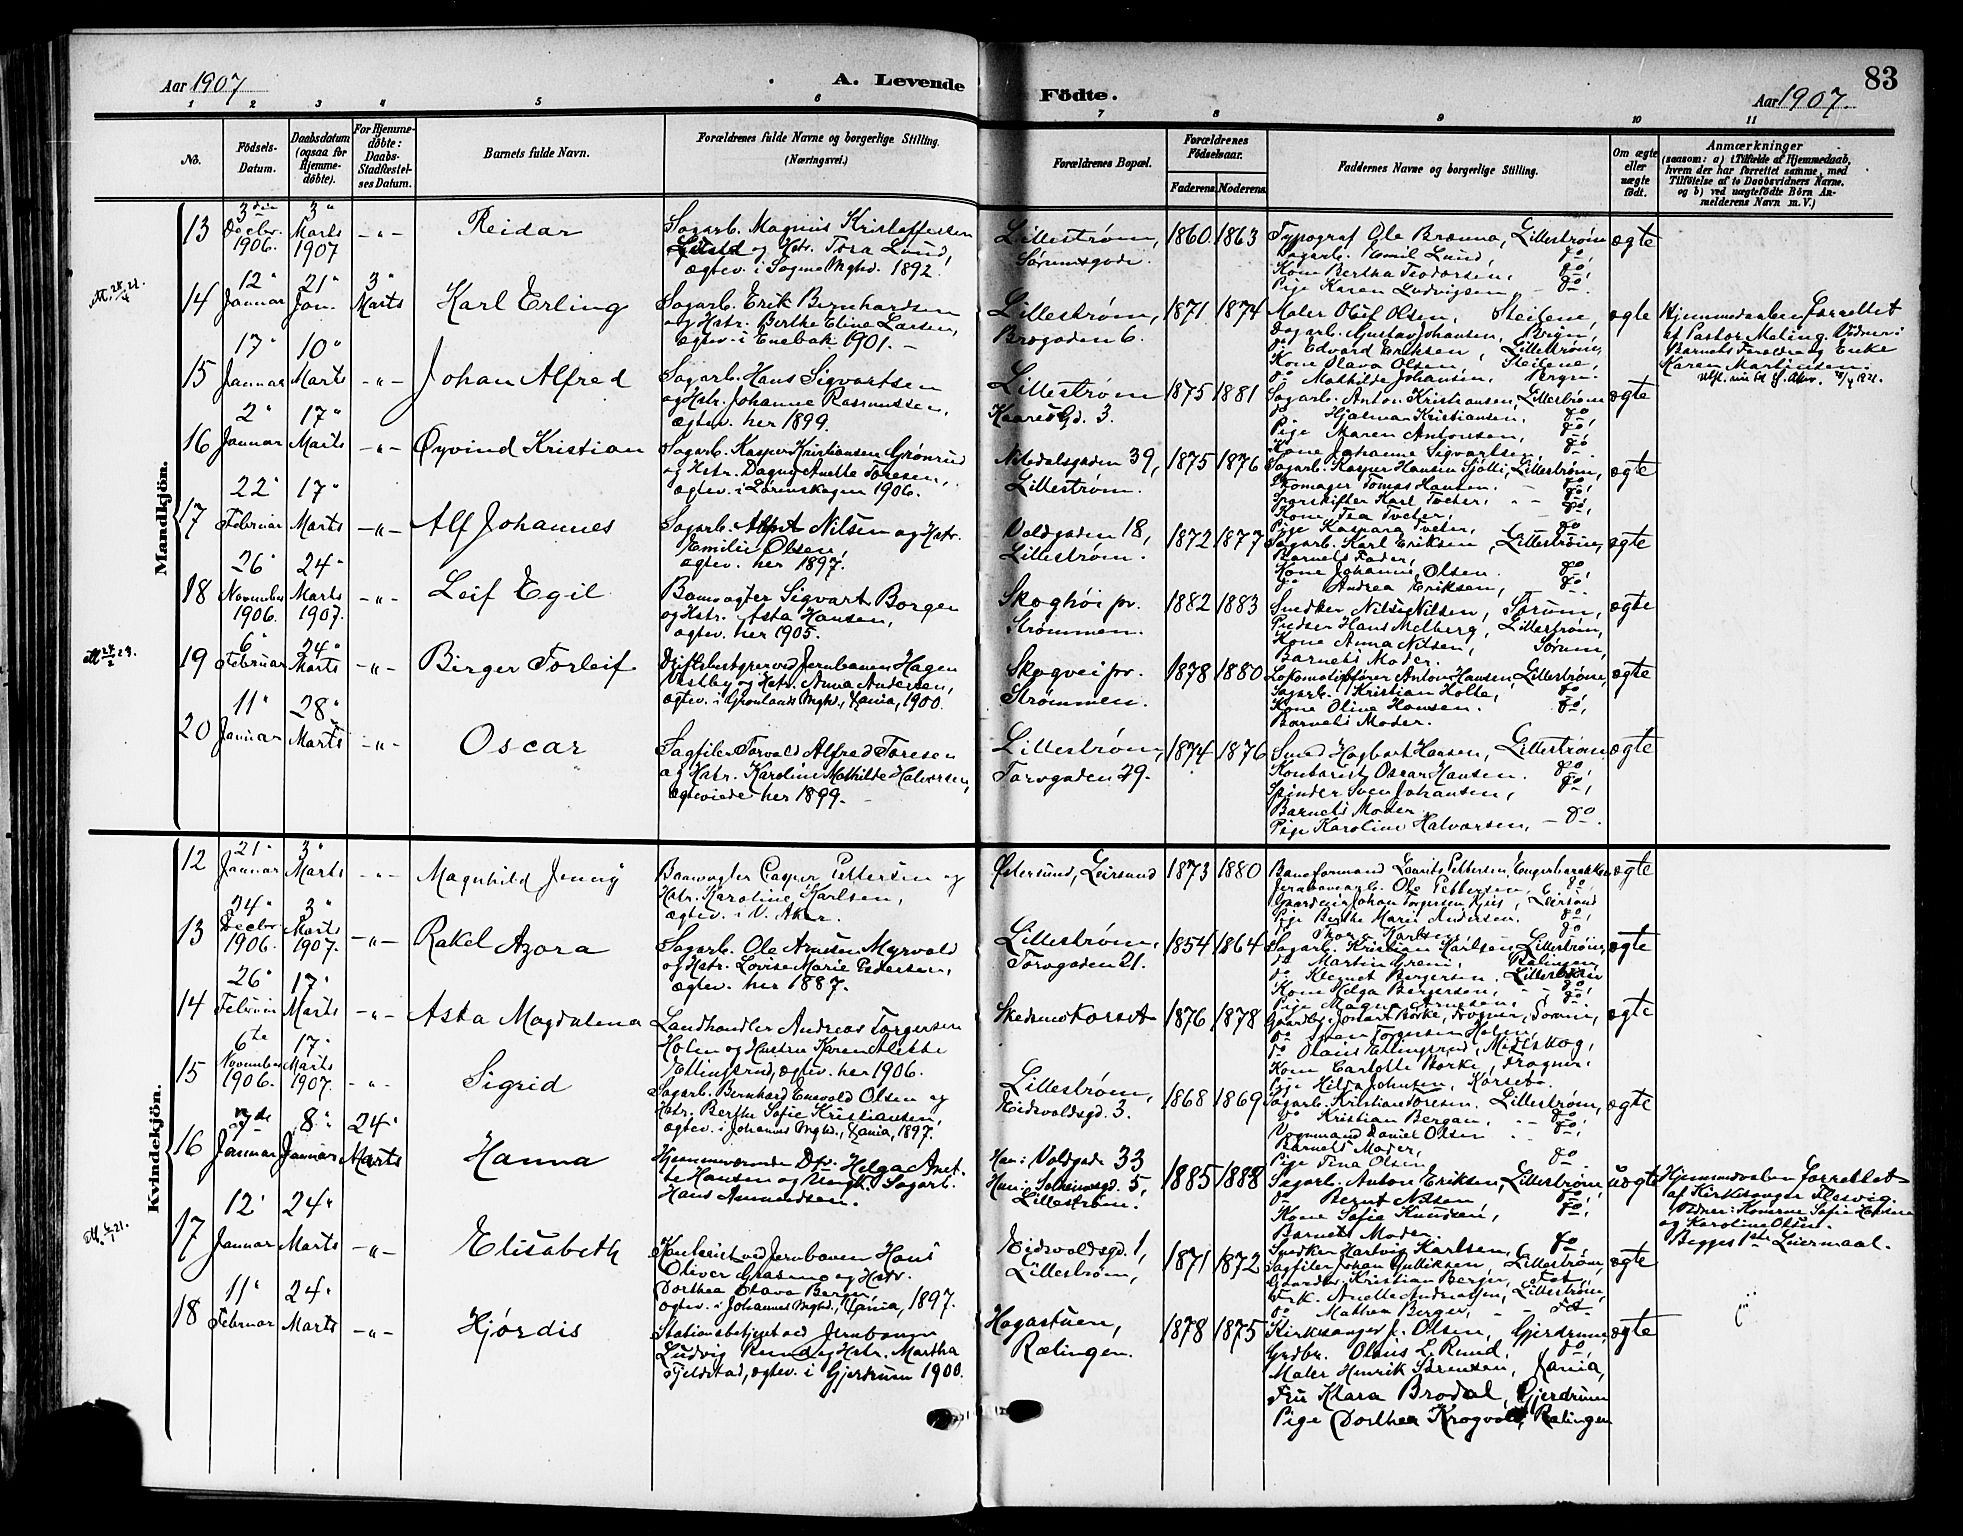 Aar 1907
A. Levende
Födte.
Aar 1907.
83
1 2 3 4 5 6 7 8 9 10 11
No.
Födsels-
Datum.
Daabsdatum
(ogsaa for
Hjemme-
døbte).
For Hjemme-
døbte:
Daabs-
Stadfæstel-
ses Datum.
Barnets fulde Navn.
Forældrenes fulde Navne og borgerlige Stilling.
(Næringsvei.)
Forældrenes Bopæl.
Forældrenes
Födselsaar.
Faderens.
Moderens.
Faddernes Navne og borgerlige Stilling.
Om ægte
eller
uægte
födt.
Anmærkninger
(saasom: a) i Tilfælde af Hjemmedaab,
hvem der har forrettet samme, med
Tilföielse af to Daabsvidners Navne.
og b) ved uægtefödte Börn An-
melderens Navn m. V.)
Mandkjön.
13
3die
Decbr.
1906.
3"
Marts
1907
-"-
Reidar
Sagarb. Magnus Kristoffersen
Lund og Hstr. Tora Lund,
ægtev. i Sogne Mghd. 1892.
Lillestrøm,
Sørumsgade.
1860
1863
Typograf Ole Brænna, Lillestrøm
Sagarb. Emil Lund, do,
Kone Bertha Teodorsen, do,
Pige Karen Ludvigsen - do.
ægte
14
12"
Januar
21"
Jan.
3"
Marts
Karl Erling
Sagarb. Erik Bernhardsen
og Hstr. Berthe Eline Larsen,
ægtev. i Enebak 1901. -
Lillestrøm,
Brogaden 6.
1871
1874
Maler Oluf Olsen, Steilene,
Dagarb. Gustav Johansen, Bergen,
do Edvard Eriksen, Lillestrøm,
Kone Olava Olsen, Steilene,
do Mathilde Johansen, Bergen.
ægte
Hjemmedaaben forrettet
af Pastor Meling. Vidner:
Barnets Forældre og Enke
Karen Martinsen.
15
17"
Januar
10"
Marts
-"-
Johan Alfred
Sagarb. Hans Sigvartsen
og Hstr. Johanne Rasmussen,
ægtev. her 1899.
Lillestrøm
Kaares Gd. 3.
1875
1881
Sagarb. Anton Kristiansen, Lillestrøm
do Hjalmar Kristiansen. do,
Pige Maren Antonsen, do,
Kone Johanne Sigvartsen, do.
ægte
16
2"
Januar
17"
Marts
-"-
Øyvind Kristian
Sagarb. Kasper Kristiansen Grønrud
og Hstr. Dagny Anette Toresen,
ægtev. i Lørenskogen 1906.
Nitedalsgaden 39,
Lillestrøm.
1875
1876
Sagarb. Kasper Hansen Sjølli, Lillestrøm,
Skomager Tomas Hansen. - do,
Sporskifter Karl Tveter, - - do,
Kone Tea Tveter, - do,
Pige Kaspara Tveter, do
ægte
17
22"
Februar
17"
Marts
-"-
Alf Johannes
Sagarb. Albert Nilsen og Hstr.
Emilie Olsen,
ægtev. her 1897.
Voldgaden 18,
Lillestrøm.
1872
1877
Sagarb. Karl Eriksen, Lillestrøm,
Barnets Fader,
Kone Johanne Olsen. do,
do Andrea Eriksen, do.
ægte
18
26"
November
1906.
24"
Marts
1907.
-"-
Leif Egil
Banevogter Sigvart Borgen
og Hstr. Asta Hansen,
ægtev. her 1905.
Skoghøi pr.
Strømmen.
1882
1883
Snedker Nils Nilsen, Sørum,
Pudser Hans Melberg, Lillestrøm,
Kone Anna Nilsen, Sørum,
Barnets Moder.
ægte
19
6"
Februar
24"
Marts
-"-
Birger Torleif
Driftsbestyrer ved Jernbanen Hagen
Vestby og Hstr. Anna Andersen,
ægtev. i Grønlands Mghd., Xania, 1900.
Skogvei pr.
Strømmen.
1878
1880
Lokomotivfører Anton Hansen, Lillestrøm,
Sagarb. Kristian Holte, do,
Kone Oline Hansen. do,
Barnets Moder.
ægte
20
11"
Januar
28"
Marts
-"-
Oscar
Sagfiler Torvald Alfred Toresen
og Hstr. Karoline Mathilde Halvorsen,
ægteviede her 1899.
Lillestrøm,
Torvgaden 29.
1874
1876
Smed Hagbart Hansen, Lillestrøm.
Kontorist Oscar Hansen. do,
Spinder Sven Johansen, do,
Barnets Moder,
Pige Karoline Halvorsen, - do.
ægte
Kvindekjön.
12
21"
Januar
3"
Marts
-"-
Magnhild Jenny
Banevogter Casper Pettersen og
Hstr. Karoline Karlsen,
ægtev. i V. Aker.
Østersund, Leirsund
1873
1880
Baneformand Lauritz Pettersen,
Jernbanearb. Ole Pettersen, do,
Pige Berthe Marie Andersen. do,
Thora Karlsen, do
ægte
13
24"
Decbr.
1906.
3"
Marts
1907.
-"-
Rakel Azora
Sagarb. Ole Arnesen Myrvold
og Hstr. Lovise Marie Pedersen,
ægtev. her 1887.
Lillestrøm,
Torvgaden 21.
1854
1864
Sagarb. Kristian Karlsen, Lillestrøm,
do Martin Greni, Rælingen,
do Klemet Bergersen, Lillestrøm
Kone Helga Bergersen, - do,
Pige Magna Arnesen, do
ægte
14
26"
Februar
17"
Marts
-"-
Asta Magdalena
Landhandler Andreas Torgersen
Holen og Hustru Karen Alette
Ellingsrud, ægtev. her 1906.
Skedsmokorset
1876
1878
Gaardbr. Johan Borke, Frogner, Sørum,
do Sven Torgersen Holen,
do Olaus Ellingsrud, Midtskog,
Kone Carlotte Borke, Frogner,
Pige Hilda Johnsen, Korsebø.
ægte
15
6te
November
1906.
17"
Marts
1907.
-"-
Sigrid
Sagarb. Bernhard Enevold Olsen og
Hstr. Berthe Sofie Kristiansen,
ægtev. i Johannes Mghd., Xania, 1897.
Lillestrøm,
Eidsvoldsgd. 3.
1868
1869
Sagarb. Kristian Toresen. Lillestrøm,
do Kristian Bergan, - - do,
Vognmand Daniel Olsen - do,
Barnets Moder,
Pige Tina Olsen, do
ægte
16
7de
Januar
8"
Januar
24"
Marts
Hanna
Hjemmeværende Dtr. Helga Anet-
te Hansen og Ungk. Sagarb.
Hans Amundsen.
Han: Voldgade 33
Hun: Solheimsgd. 5,
Lillestrøm.
1885
1888
Sagarb. Anton Eriksen, Lillestrøm,
do Bernt Nilsen do,
Kone Sofie Knudsen, do,
Barnets Moder.
uægte
Hjemmedaaben forrettet
af Kirkesanger Flesvig.
Vidner: Konerne Sofie Hansen
og Karoline Olsen.
Begges 1ste Leiermaal.
17
12"
Januar
24"
Marts
-"-
Elisabeth
Kontorist ved Jernbanen Hans
Oliver Grasmo og Hstr.
Dorthea Olava Berger,
ægtev. i Johannes Mghd., Xania, 1897.
Eidsvoldsgd. 1,
Lillestrøm,
1871
1872
Snedker Hartvig Karlsen, do
Sagfiler Johan Gulliksen, Lillestrøm,
Gaardbr. Kristian Berger, Fet,
Frk. Anette Andreassen, Lillestrøm,
do Mathea Berger, - - Fet
ægte
18
11"
Februar
24"
Marts
-"-
Hjørdis
Stationsbetjent ved Jernbanen
Ludvig Rund og Hstr. Martha
Fjeldstad, ægtev. i Gjerdrum 1900.
Hagastuen,
Rælingen.
1878
1875
Kirkesanger J. Olsen, Gjerdrum,
Grdbr. Olaus L. Rund, do,
Maler Henrik Sørensen, Xania,
Fru Klara Brodal, Gjerdrum
Pige Dorthea Krogvold, Rælingen
ægte